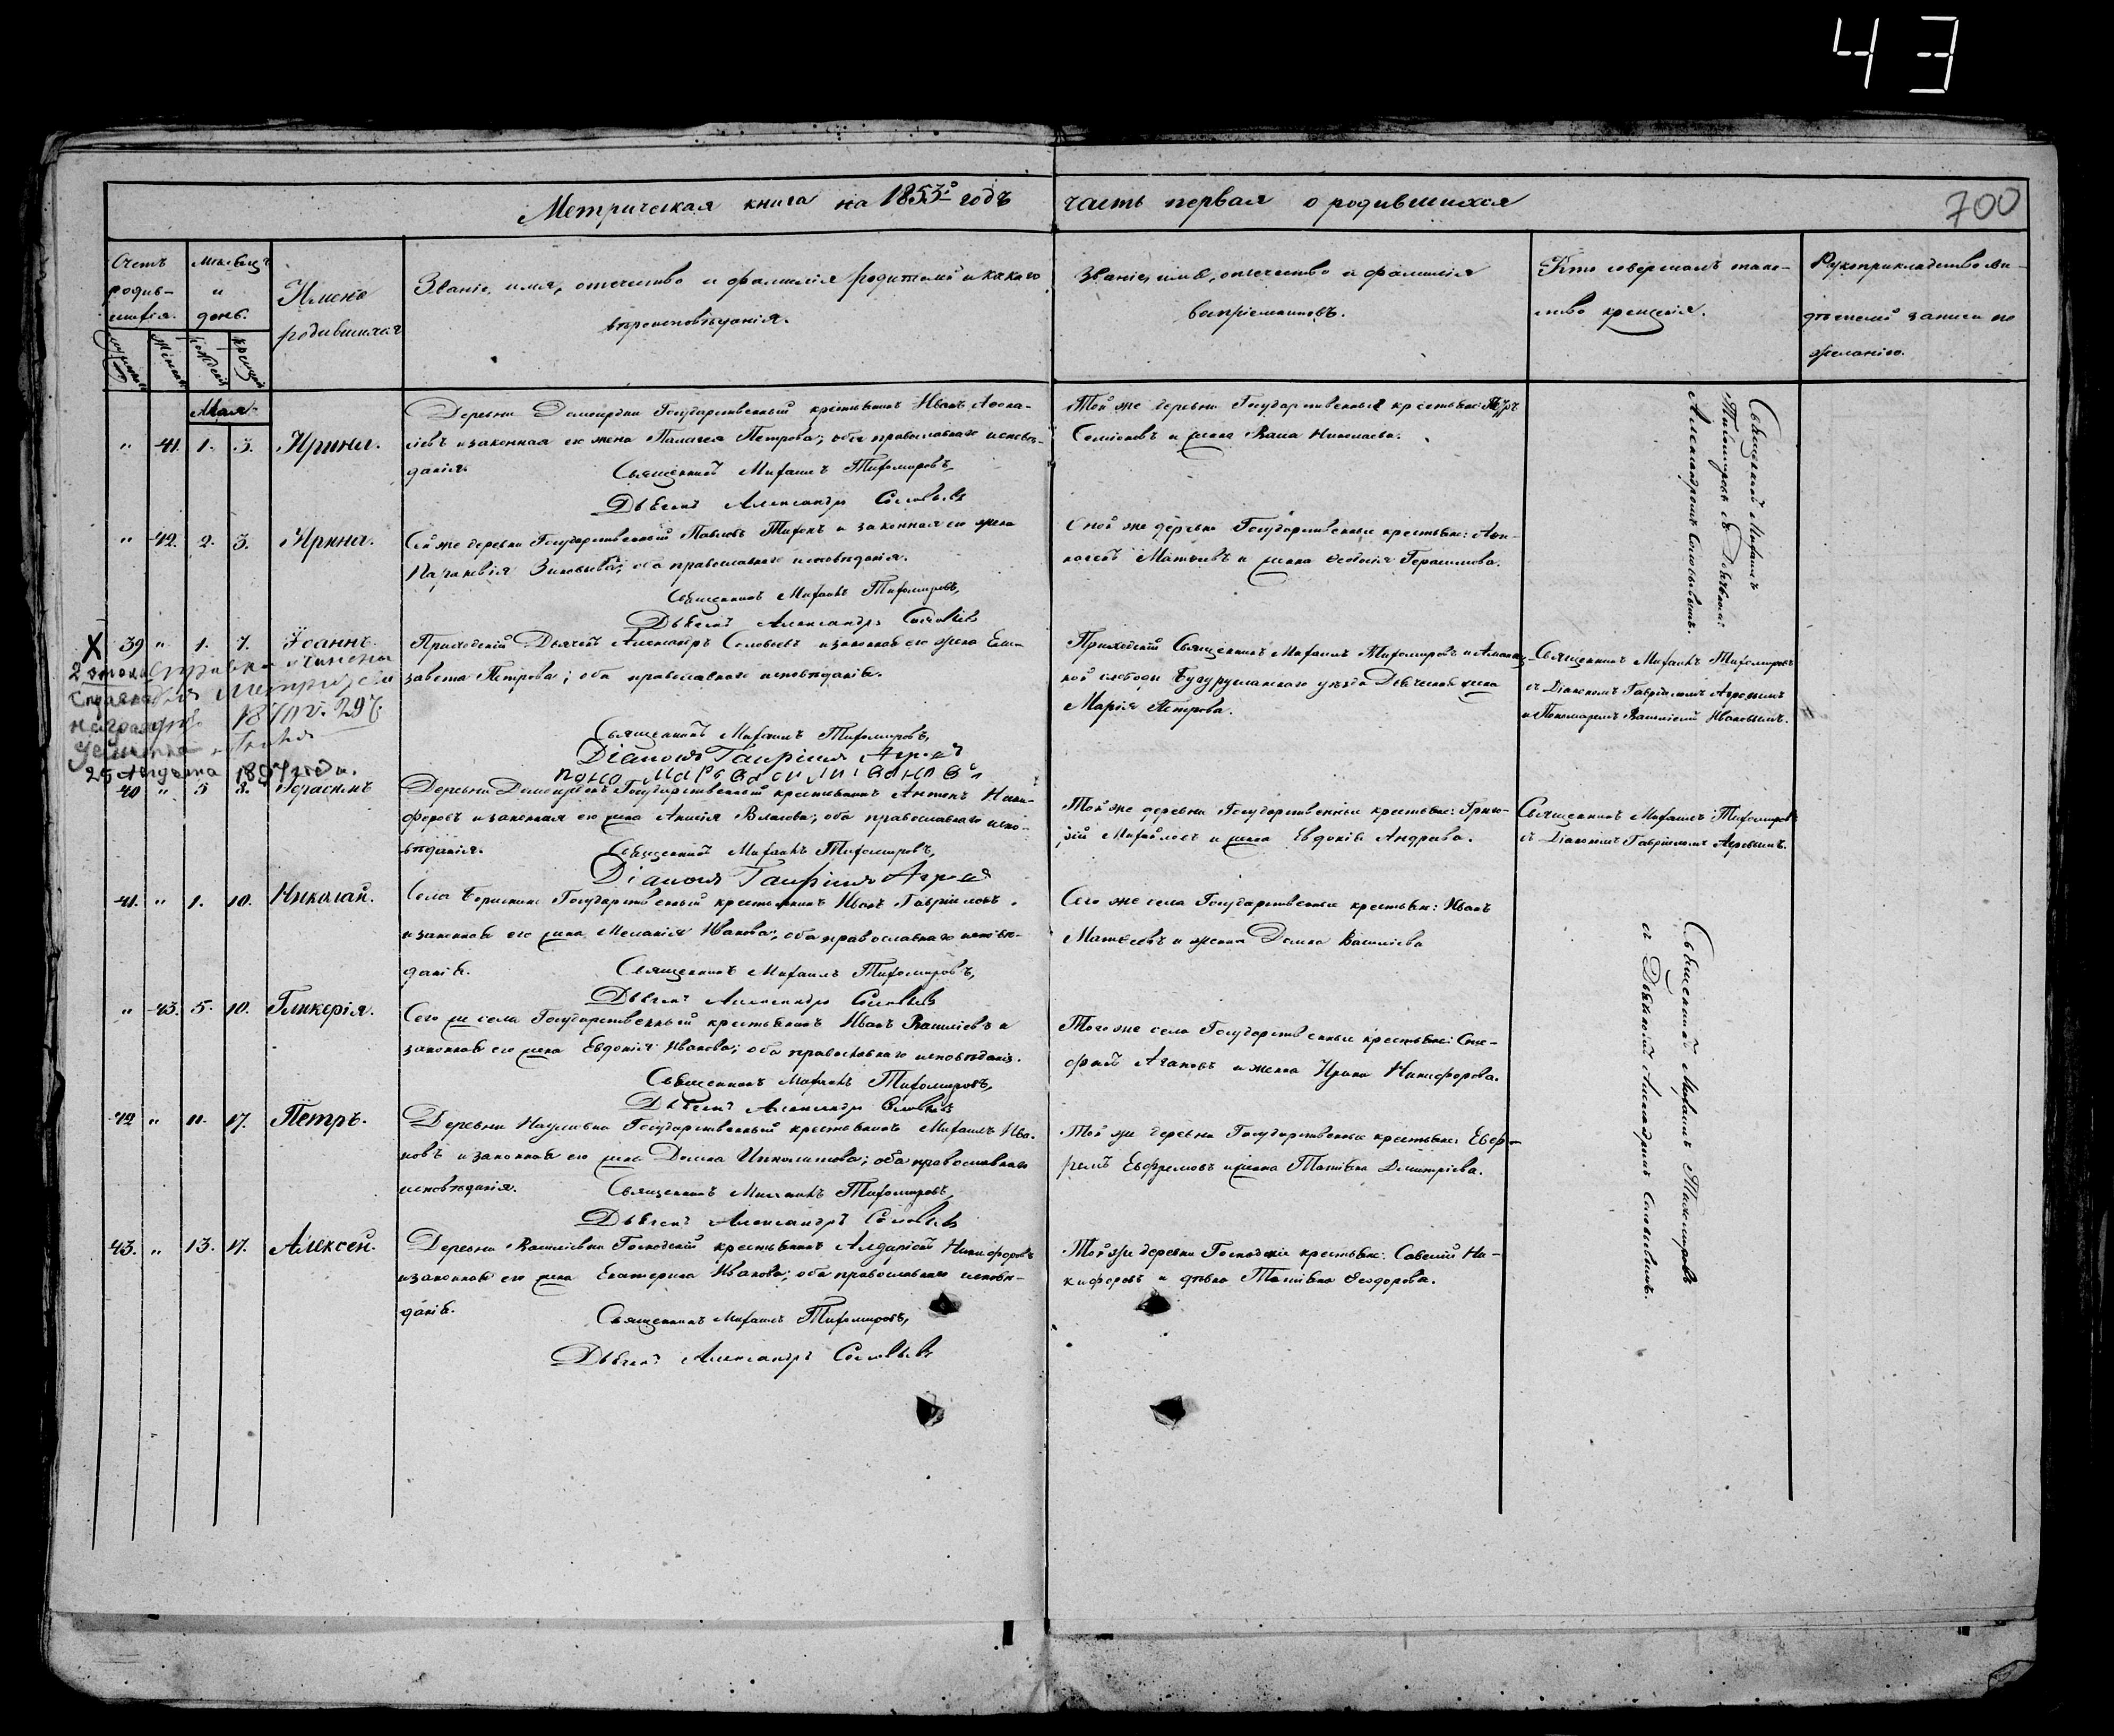 43
Метрическая книга на 1853й годъ часть первая о родившихся
700
Счетъ
родив-
шихся.
Мѣсяцъ
и
день.
Имена
родившихся
Званіе, имя, отчество и фамилія родителей и какого
вѣроисповѣданія.
Званіе, имя, отчество и фамилія
воспріемниковъ.
Кто совершалъ таин-
ство крещенія.
Рукоприкладство сви-
дѣтелей записи по
желанію.
Мая
" 41. 1. 3. Ирина.
Деревни Государственный крестьянинъ Иванъ Афона-
сьевъ и законная его жена Палагея Петрова; оба православнаго исповѣ-
данія.
Священникъ Михаилъ Тихомировъ,
Дьячекъ Александръ Соловьевъ
Той же деревни Государственные крестьяне:
и жена Николаева.
Священникъ Михаилъ
Тихомировъ съ Дьячкомъ
Александромъ Соловьевымъ.
" 42. 2. 3. Ирина.
Сей же деревни Государственный Павловъ и законная его жена
Параскевія оба православнаго исповѣданія.
Священникъ Михаилъ Тихомировъ,
Дьячекъ Александръ Соловьевъ
той же деревни Государственные крестьяне: Афо-
насей Матвѣевъ и жена Ѳеодосія Герасимова.
X 39 " 1. 7. Іоаннъ.
Приходскій Дьячекъ Александръ Соловьевъ и законная его жена Ели-
завета Петрова; оба православнаго исповѣданія.
Священникъ Михаилъ Тихомировъ,
Діаконъ Гавріилъ
Приходскій Священникъ Михаилъ Тихомировъ и
кой слободы Бугурусланскаго уѣзда Дьячекова жена
Марія Петрова.
Священникъ Михаилъ Тихомировъ
съ Діакономъ Гавріиломъ
и Пономаремъ Василіемъ Ивановымъ.
25 Августа 1897 года.
40 " 3 8. Герасимъ
Деревни Государственный крестьянинъ Антонъ Ники-
форовъ и законная его жена Анисія Власова; оба православнаго испо-
вѣданія.
Священникъ Михаилъ Тихомировъ,
Діаконъ Гавріилъ
Той же деревни Государственные крестьяне: Григо-
рій Михайловъ и жена Евдокія Андреева.
Священникъ Михаилъ Тихомировъ
съ Діакономъ Гавріиломъ
41. " 1. 10. Николай.
Села Государственный крестьянинъ Иванъ Гавриловъ
и законная его жена Меланія Иванова; оба православнаго исповѣ-
данія.
Священникъ Михаилъ Тихомировъ,
Дьячекъ Александръ Соловьевъ
Сего же села Государственные крестьяне: Иванъ
Матвеевъ и жена Домна Васильева
Священникъ Михаилъ Тихомировъ
съ Дьячкомъ Александромъ Соловьевымъ.
" 43. 5. 10. Гликерія.
Сего же села Государственный крестьянинъ Иванъ Василіевъ и
законная его жена Евдокія Иванова; оба православнаго исповѣданія.
Священникъ Михаилъ Тихомировъ,
Дьячекъ Александръ Соловьевъ
Того же села Государственные крестьяне:
и жена Ирина Никифорова.
42 " 11. 17. Петръ.
Деревни Наумовки Государственный крестьянинъ Михаилъ Ива-
новъ и законная его жена Домна Ипполитова; оба православнаго
исповѣданія.
Священникъ Михаилъ Тихомировъ,
Дьячекъ Александръ Соловьевъ
Той же деревни Государственные крестьяне: Евф-
ремъ Евфремовъ и жена Татіяна Димитріева.
43. " 13. 17. Алексей.
Деревни Василіевки Господскій крестьянинъ Никифоровъ
и законная его жена Екатерина Иванова; оба православнаго исповѣ-
данія.
Священникъ Михаилъ Тихомировъ,
Дьячекъ Александръ Соловьевъ
Той же деревни Господскіе крестьяне: Савелій Ни-
кифоровъ и дѣвка Татіяна Ѳеодорова.